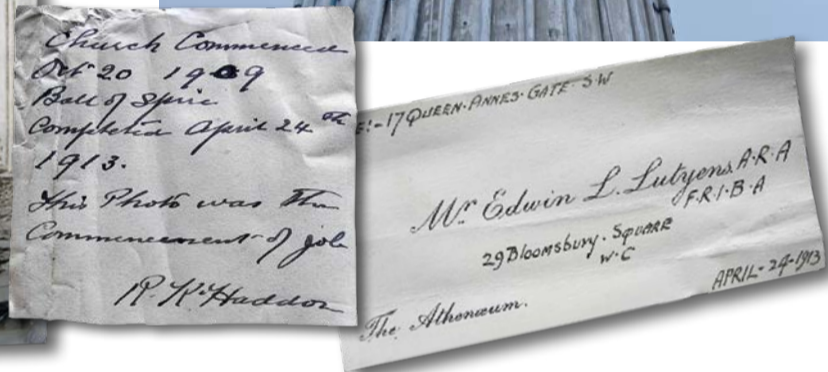 Church Commenced
Oct 20 1909
Ball of Spire
Completed April 24th
1913.
This Photo was the
Commencement of job
R. K. Haddon
E:-17 QUEEN·ANNES·GATE·S·W
Mr Edwin L. Lutyens. A·R·A
F·R·I·B·A
29 Bloomsbury. SQUARE
W·C
The Athenæum.
APRIL-24-1913